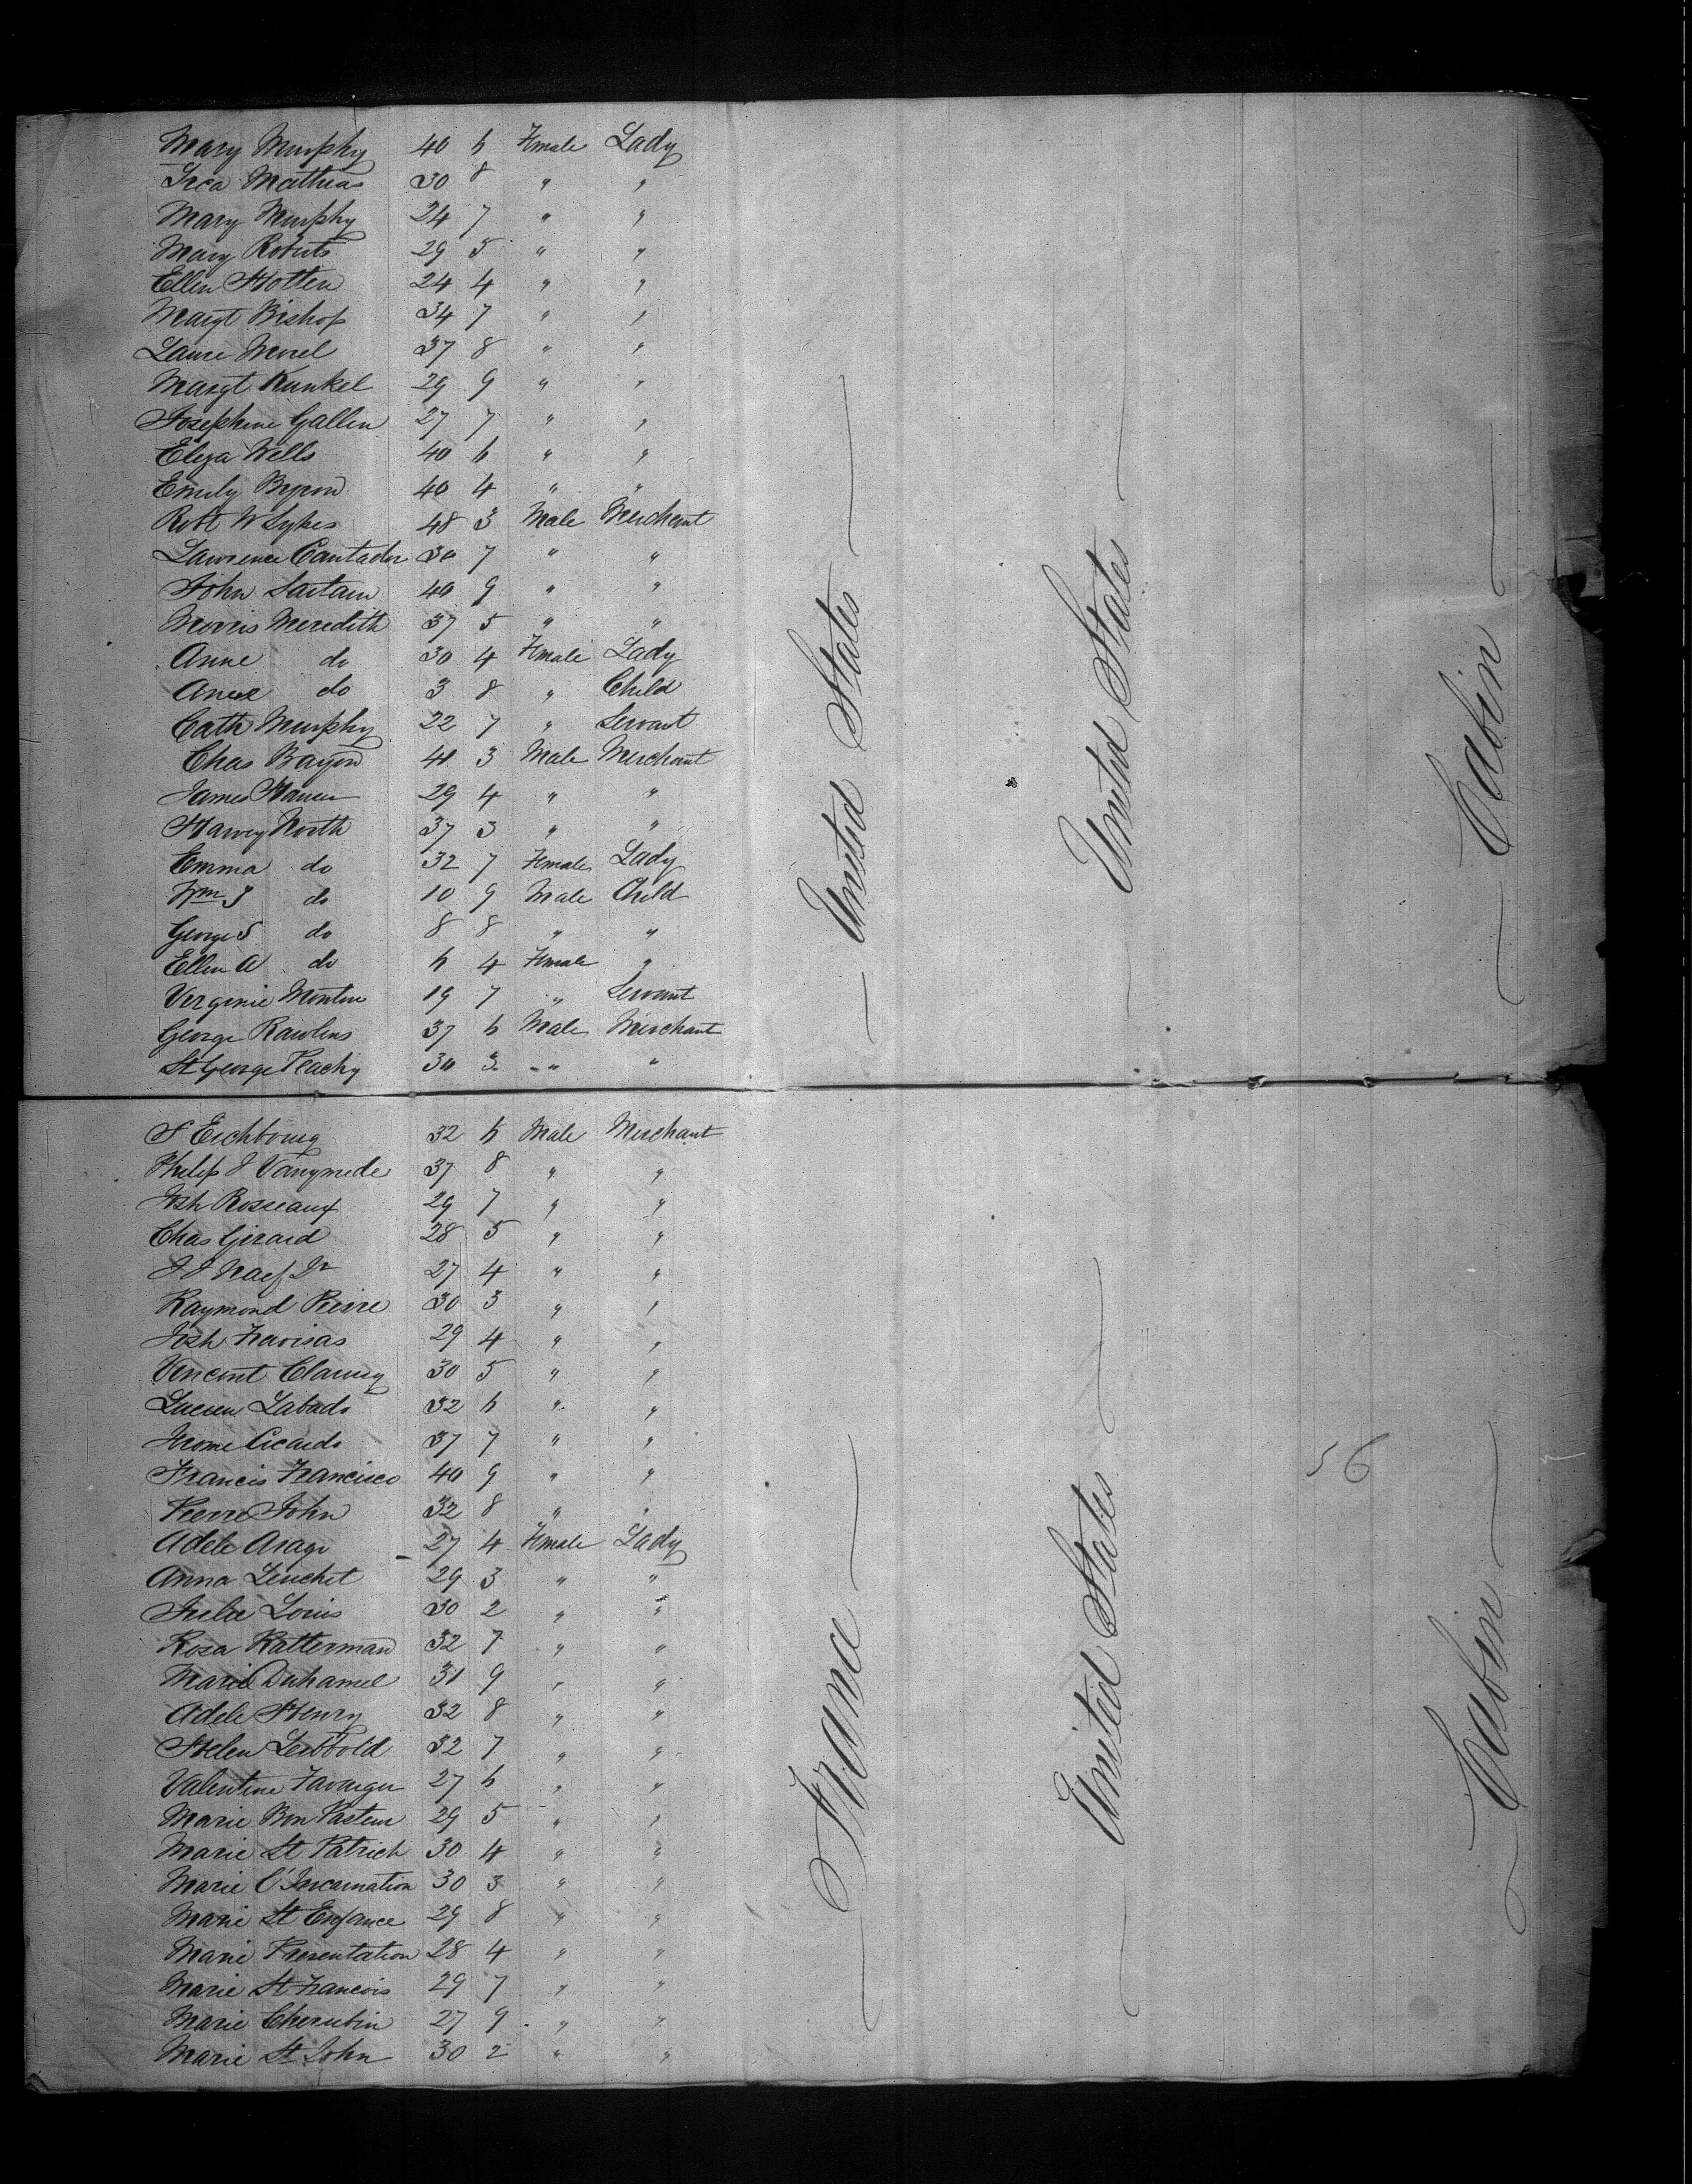 Mary Murphy 40 6 Female Lady
Mathias 30 8 " "
Mary Murphy 24 7 " "
Mary Roberts 29 5 " "
Ellen Hotten 24 4 " "
Margt Bishop 34 7 " "
Laure Morel 37 8 " "
Margt Kunkel 29 9 " "
Josephine Gallen 27 7 " "
Eliza Wells 40 6 " "
Emily Byron 40 4 " "
Robt W Sykes 48 3 Male Merchant
Lawrence Cantador 30 7 " "
John Sartain 40 9 " "
Morris Meredith 37 5 " "
Anne do 30 4 Female Lady
do 3 8 " Child
Cath Murphy 22 7 " Servant
Chas Bayon 41 3 Male Merchant
James 29 4 " "
Harvey North 37 3 " "
Emma do 32 7 Female Lady
Wm J do 10 9 Male Child
George S do 8 8 " "
Ellen A do 6 4 Female "
Virginie 19 7 " Servant
George Rawlins 37 6 Male Merchant
St George Peachy 30 3 " "
United States
United States
Cabin
S Eichbourg 32 6 Male Merchant
Philip J 37 8 " "
Josh Rosseaux 29 7 " "
Chas Girard 28 5 " "
J J Naef Jr 27 4 " "
Raymond Pierre 30 3 " "
Josh 29 4 " "
Vincent 30 5 " "
Lucien Labado 32 6 " "
Jerome Cicardo 37 7 " "
Francis Francisco 40 9 " "
Pierre John 32 8 " "
Adele Arago 27 4 Female Lady
Anna Leuchet 29 3 " "
Julie Louis 30 2 " "
Rosa Ratterman 32 7 " "
Marie Duhamel 31 9 " "
Adele Henry 32 8 " "
Helen Leibbold 32 7 " "
Valentine 27 6 " "
Marie Bon Pasteur 29 5 " "
Marie St Patrick 30 4 " "
Marie l'Incarnation 30 3 " "
Marie St Enfance 29 8 " "
Marie Presentation 28 4 " "
Marie St Francois 29 7 " "
Marie Cherubin 27 9 " "
Marie St John 30 2 " "
France
United States
56
Cabin